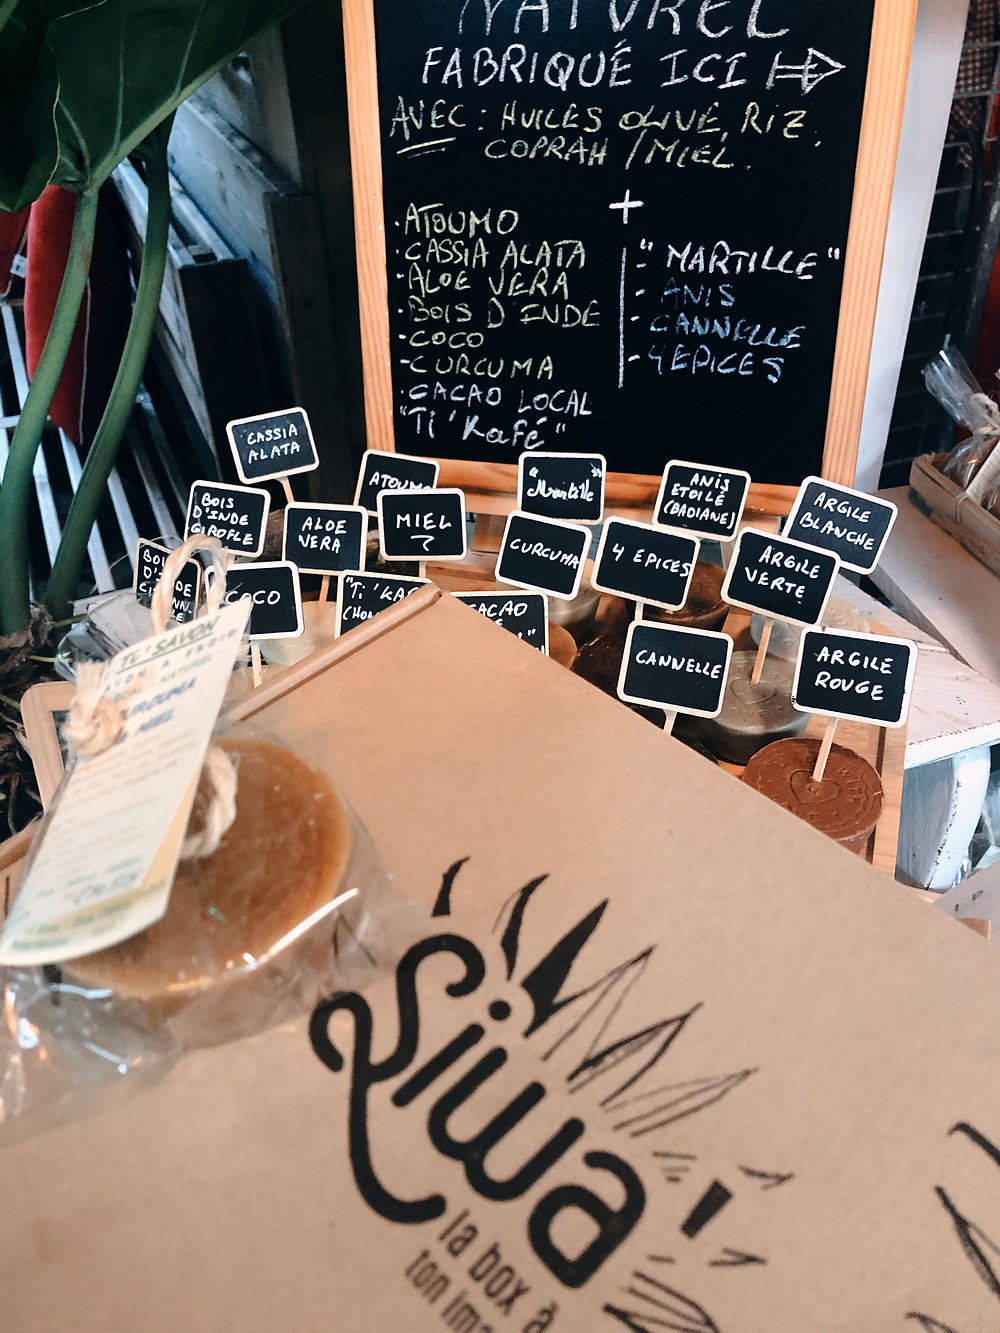 NATUREL
FABRIQUÉ ICI
AVEC : HUILES OLIVE, RIZ,
COPRAH / MIEL.
+
· ATOUMO
· CASSIA ALATA
· ALOE VERA
· BOIS D INDE
- COCO
- CURCUMA
· CACAO LOCAL
"Ti 'Kafé"
" MARTILLE "
- ANIS
- CANNELLE
- 4 EPICES
CASSIA
ALATA
ATOUMO
"Martille"
ANIS
ETOILÉ
(BADIANE)
ARGILE
BLANCHE
BOIS
D'INDE
GIROFLE
ALOE
VERA
MIEL
CURCUMA
4 EPICES
ARGILE
VERTE
D'INDE
COCO
"Ti 'KAF
CACAO
CANNELLE
ARGILE
ROUGE
TI'SAVON
CURCUMA
MIEL
Siwa
la box à
ton